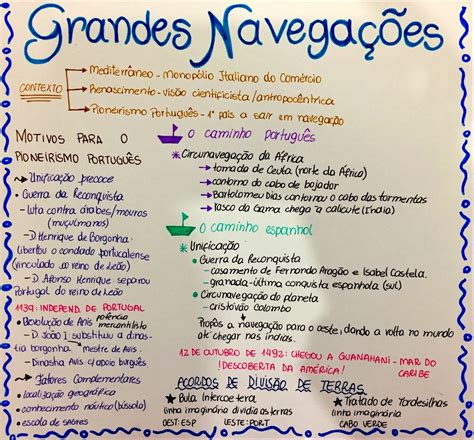 Grandes Navegações
CONTEXTO
Mediterrâneo - monopólio Italiano do Comércio
Renascimento - visão cientificista / antropocêntrica
Pioneirismo Português - 1º país a sair em navegação
MOTIVOS PARA O
PIONEIRISMO PORTUGUÊS
Unificação precoce
• Guerra da Reconquista
- luta contra árabes/mouros
(muçulmanos)
- D. Henrique de Borgonha
libertou o condado portucalense
(vinculado ao reino de Leão)
- D. Afonso Henrique separou
Portugal do reino de Leão
1139: INDEPEND. DE PORTUGAL
• Revolução de Avis potência mercantilista
- D. João I substituiu a dinas-
tia borgonha. mestre de Avis
- Dinastia Avis: apoio burguês
Fatores Complementares
• localização geográfica
• conhecimento náutico (bússola)
• escola de sagres
O caminho português
* Circunavegação da África
→ tomada de Ceuta (norte da África)
→ contorno do cabo de bojador
→ Bartolomeu dias contornou o cabo das tormentas
→ Vasco da Gama chega a calicute (Índia)
O caminho espanhol
* Unificação
• Guerra da Reconquista
- casamento de Fernando Aragão e Isabel Castela.
- granada - última conquista espanhola (sul)
• Circunavegação do planeta
- cristóvão Colombo
Propôs a navegação para o oeste, dando a volta no mundo
até chegar nas índias.
12 DE OUTUBRO DE 1492: CHEGOU A GUANAHANI - MAR DO
CARIBE
!DESCOBERTA DA AMÉRICA!
ACORDOS DE DIVISÃO DE TERRAS
* Bula Intercoetera
linha imaginária dividia as terras
OEST: ESP LESTE: PORT
* Tratado de Tordesilhas
linha imaginária
CABO VERDE